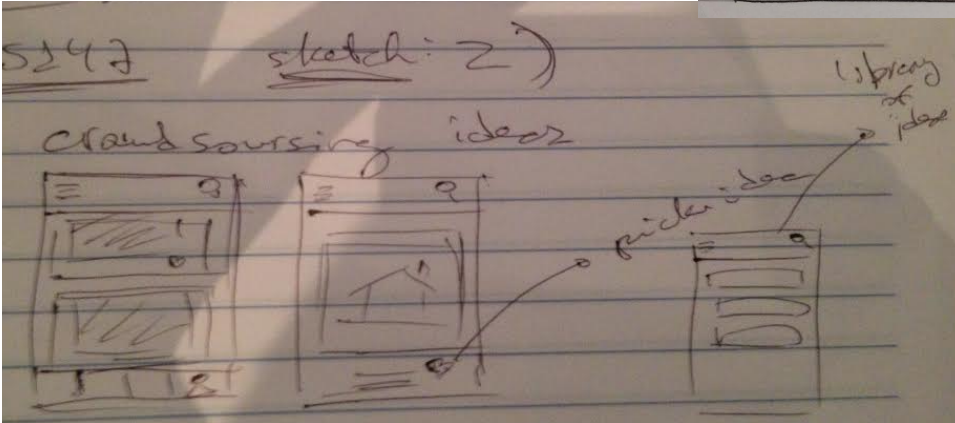 S247 sketch: 2)
crowdsoursing ideas
library
of
ideas